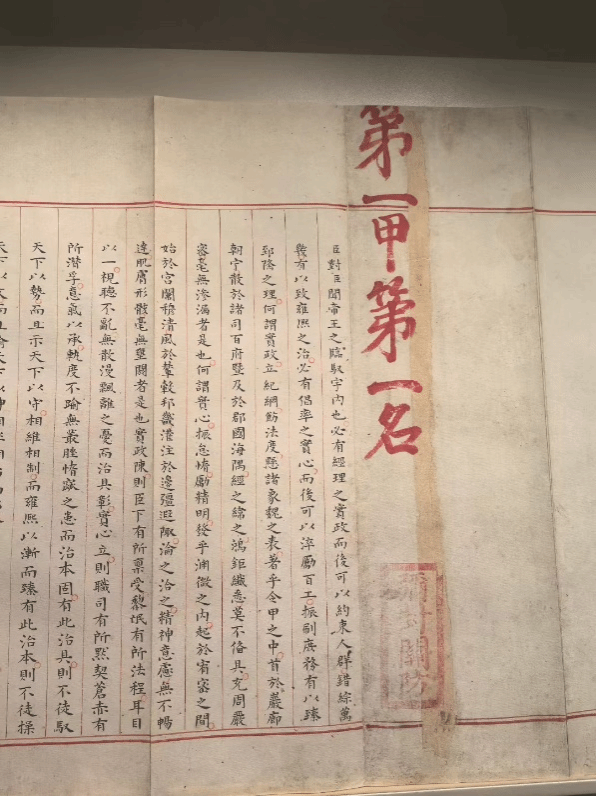 第一甲第一名
彌封關防
臣對臣聞帝王之臨馭宇内也必有經理之實政而後可以約束人群錯綜萬
幾有以致雍熙之治必有倡率之實心而後可以淬勵百工振刷庶務有以臻
郅隆之理何謂實政立紀綱飭法度懸諸象魏之表著乎令甲之中首於巖廊
朝宁散於諸司百府暨及於郡國海隅經之緯之鴻鉅纖悉莫不備具充周嚴
宻毫無滲漏者是也何謂實心振怠惰勵精明發乎淵微之内起於宥宻之間
始於宫闈穆清風於輦轂邦畿灌注於邊疆遐陬淪之洽之精神意慮無不暢
達肌膚形骸毫無壅閼者是也實政陳則臣下有所稟受黎氓有所法程耳目
以一視聽不亂無散漫飄離之憂而治具彰實心立則職司有所黙契蒼赤有
所潜孚意氣以承軌度不踰無叢脞惰窳之患而治本固有此治具則不徒馭
天下以勢而且示天下以守相維相制而雍熙以漸而臻有此治本則不徒操
天下以文而且喻天下以神相